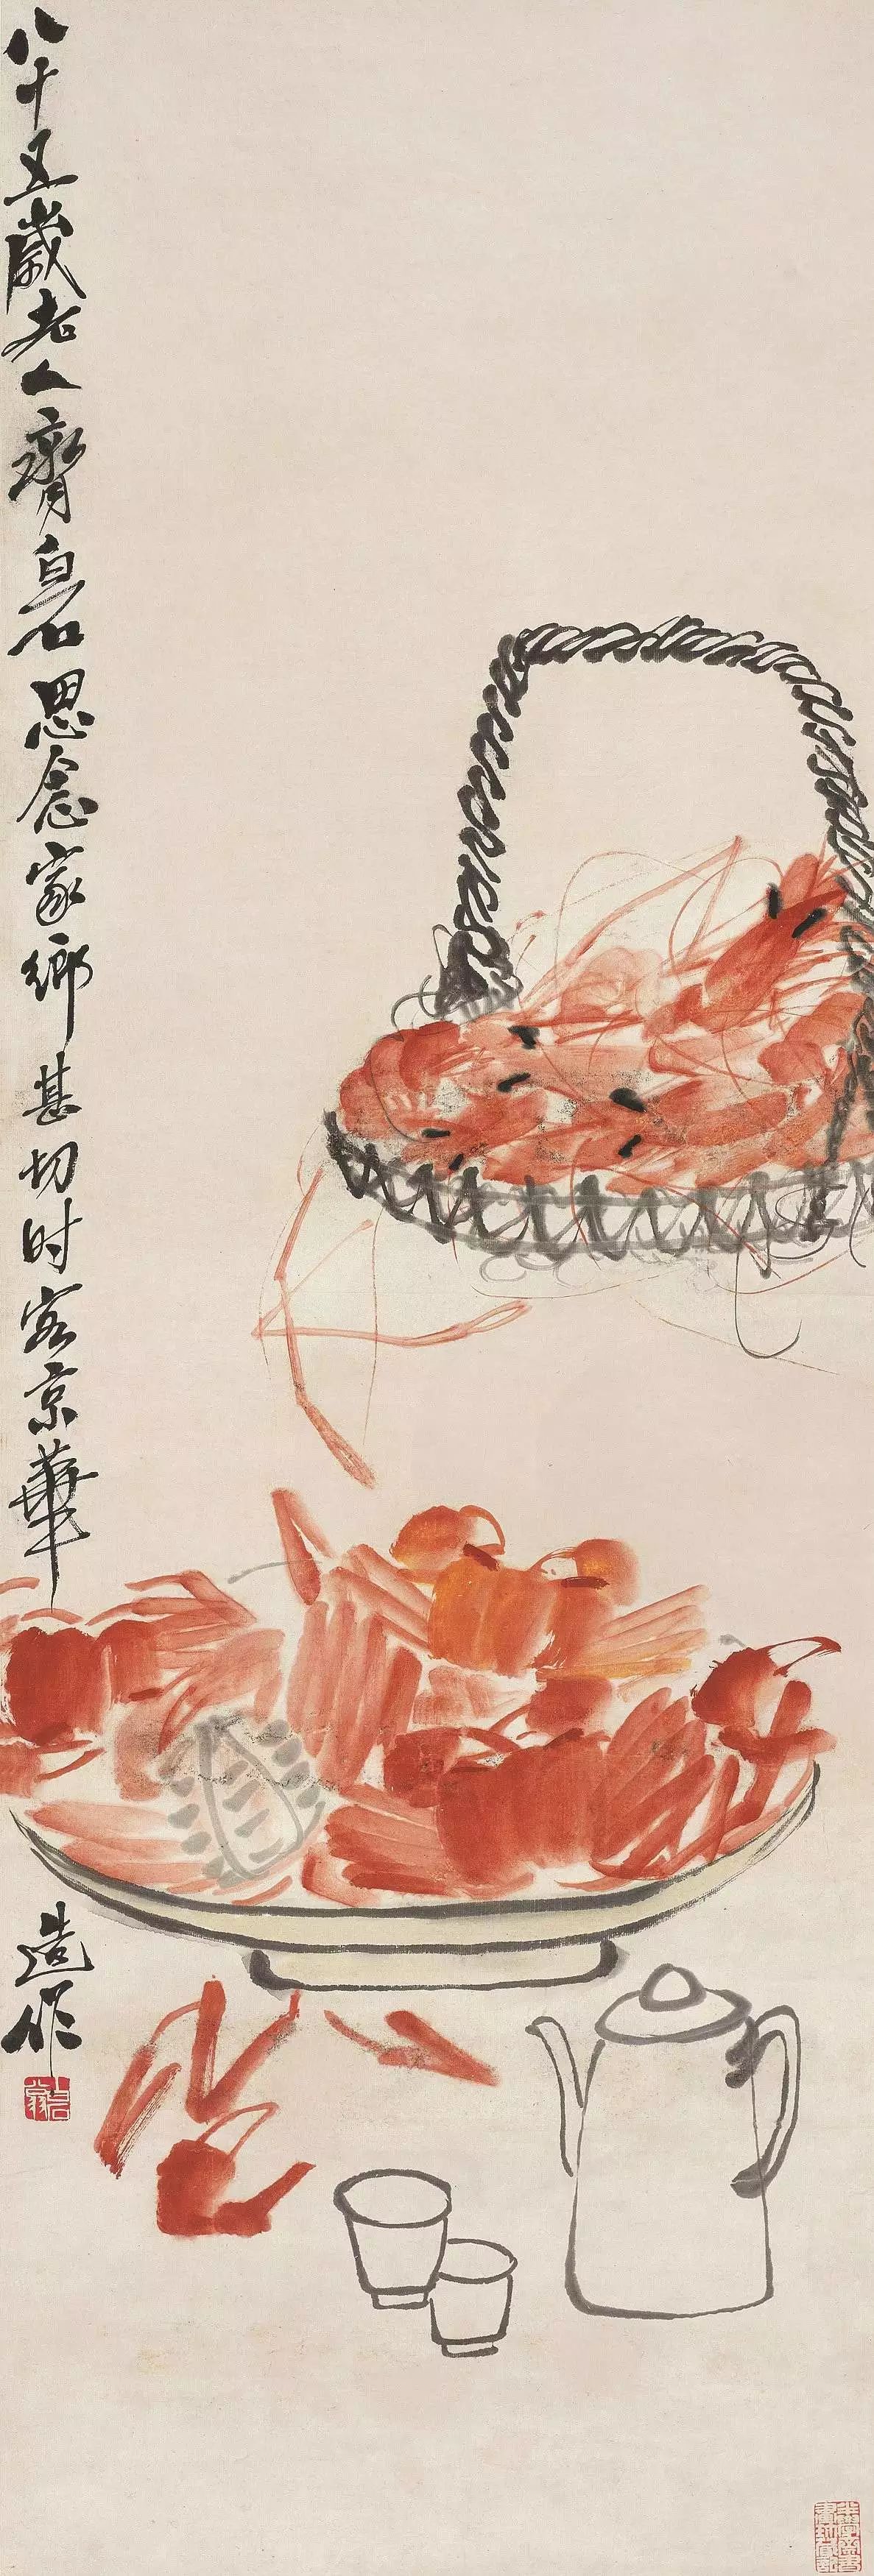 八十五歲老人齊白石思念家鄉甚切时客京華
造作
白石翁